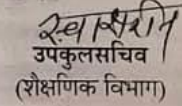 स्वाक्षरीत
उपकुलसचिव
(शैक्षणिक विभाग)